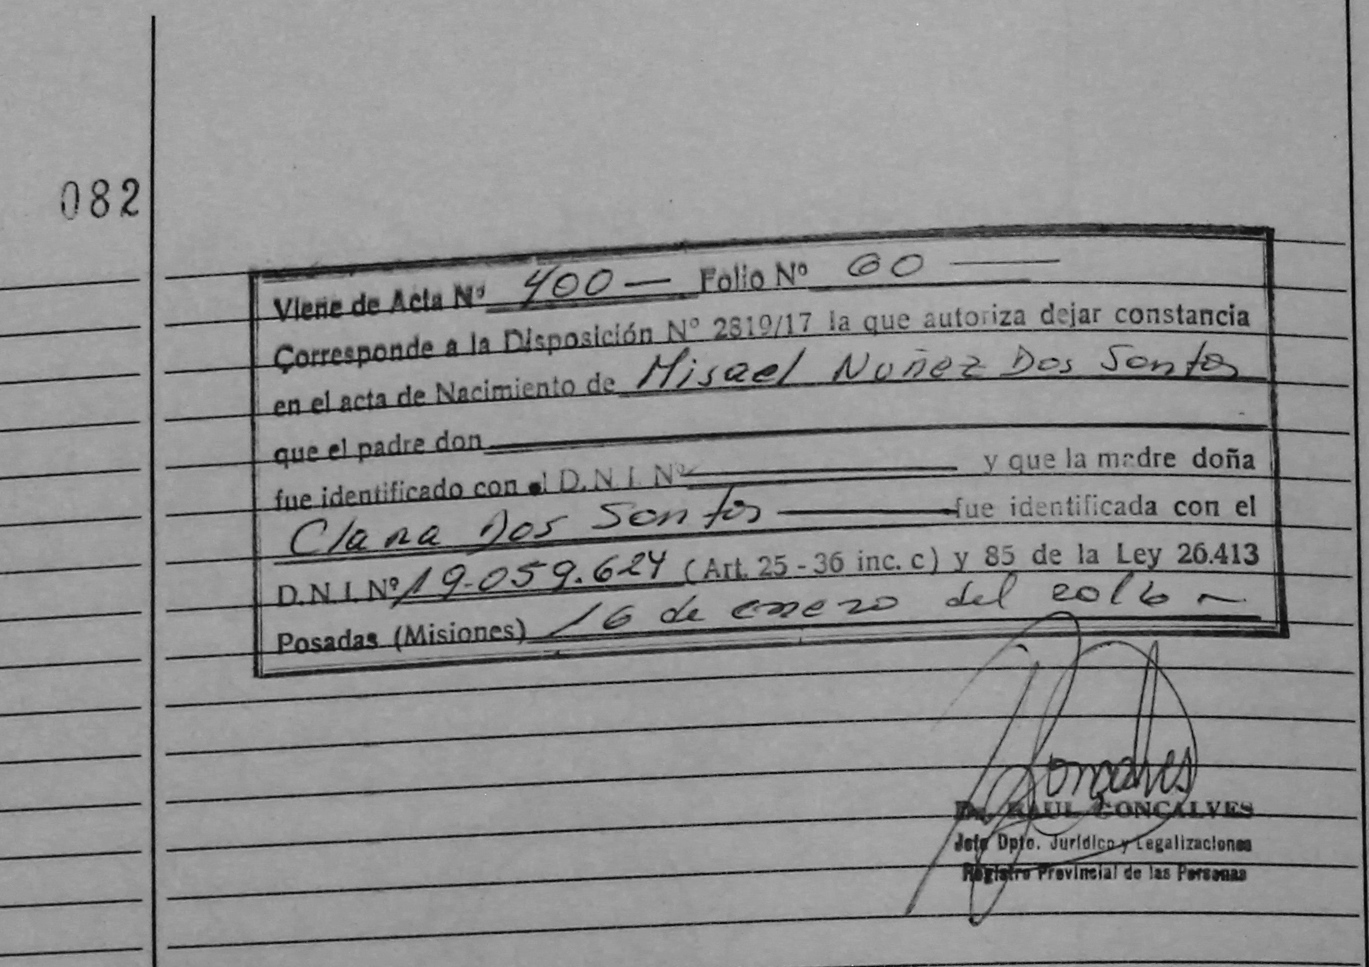 082
Viene de Acta Nº 400 — Folio Nº 60 —
Corresponde a la Disposición Nº 2819/17 la que autoriza dejar constancia
en el acta de Nacimiento de Misael Nuñez Dos Santos
que el padre don
fue identificado con el D.N.I. Nº y que la madre doña
Clara Dos Santos — fue identificada con el
D.N.I. Nº 19.059.624 (Art. 25 - 36 inc. c) y 85 de la Ley 26.413
Posadas (Misiones) 16 de enero del
Goncalves
Dr. RAUL GONCALVES
Jefe Dpto. Jurídico y Legalizaciones
Registro Provincial de las Personas